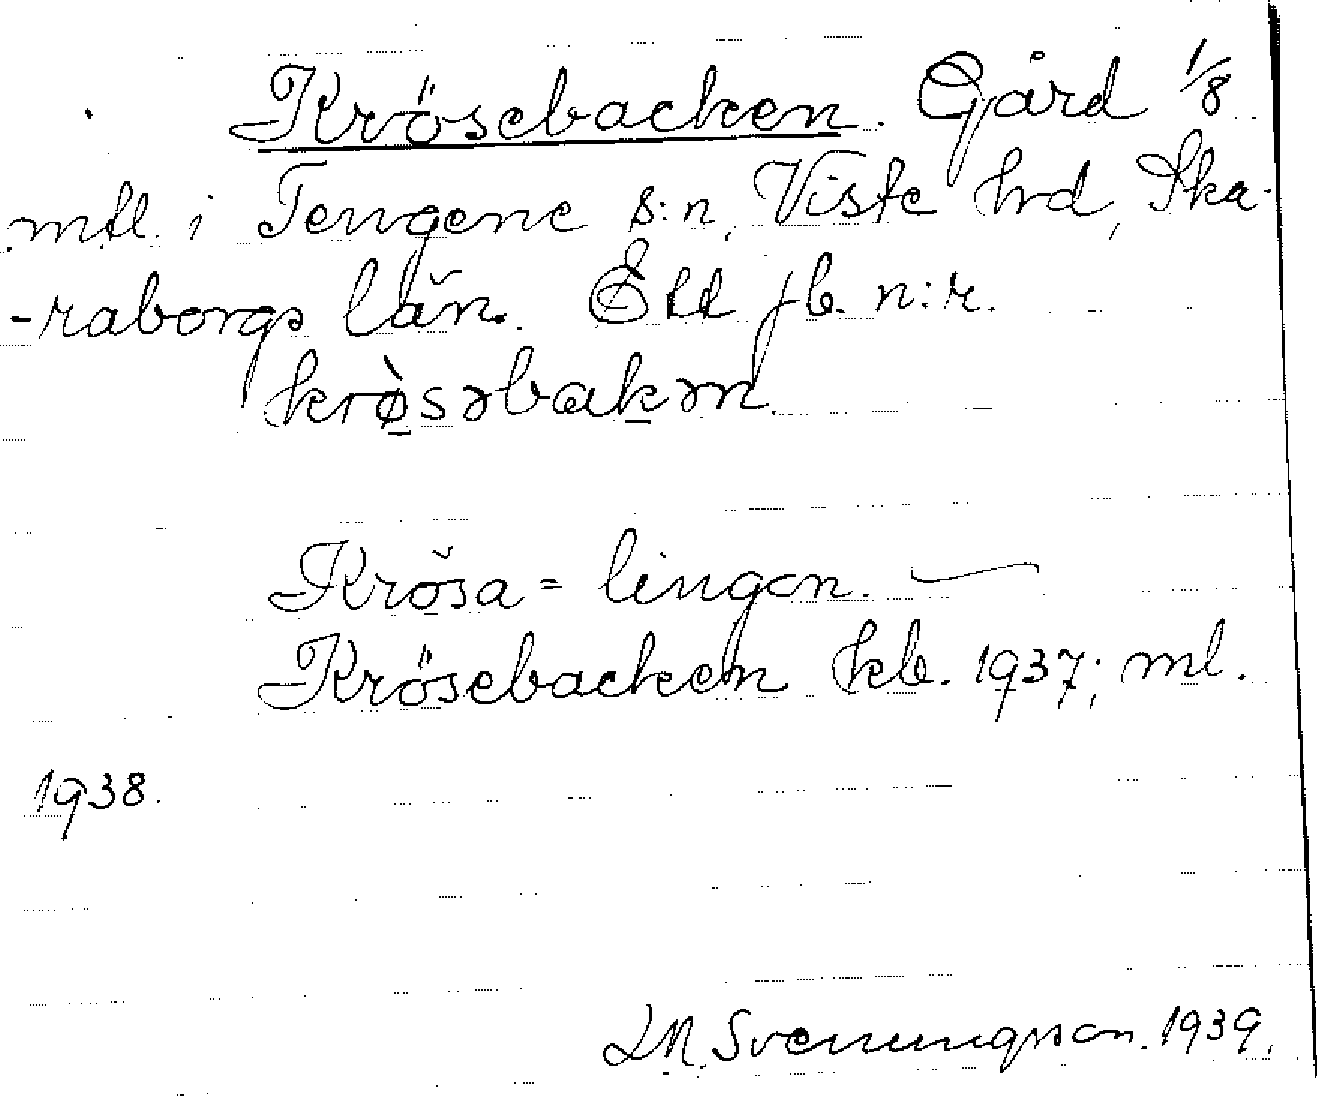 Krösebacken. Gård 1/8
mtl. i Tengene s:n, Viste hrd, Ska-
-raborgs län. Ett jb. n:r.
krø̀səbakən
Krösa = lingon. —
Krösebacken kb. 1937; ml.
1938.
Svenungsson. 1939.